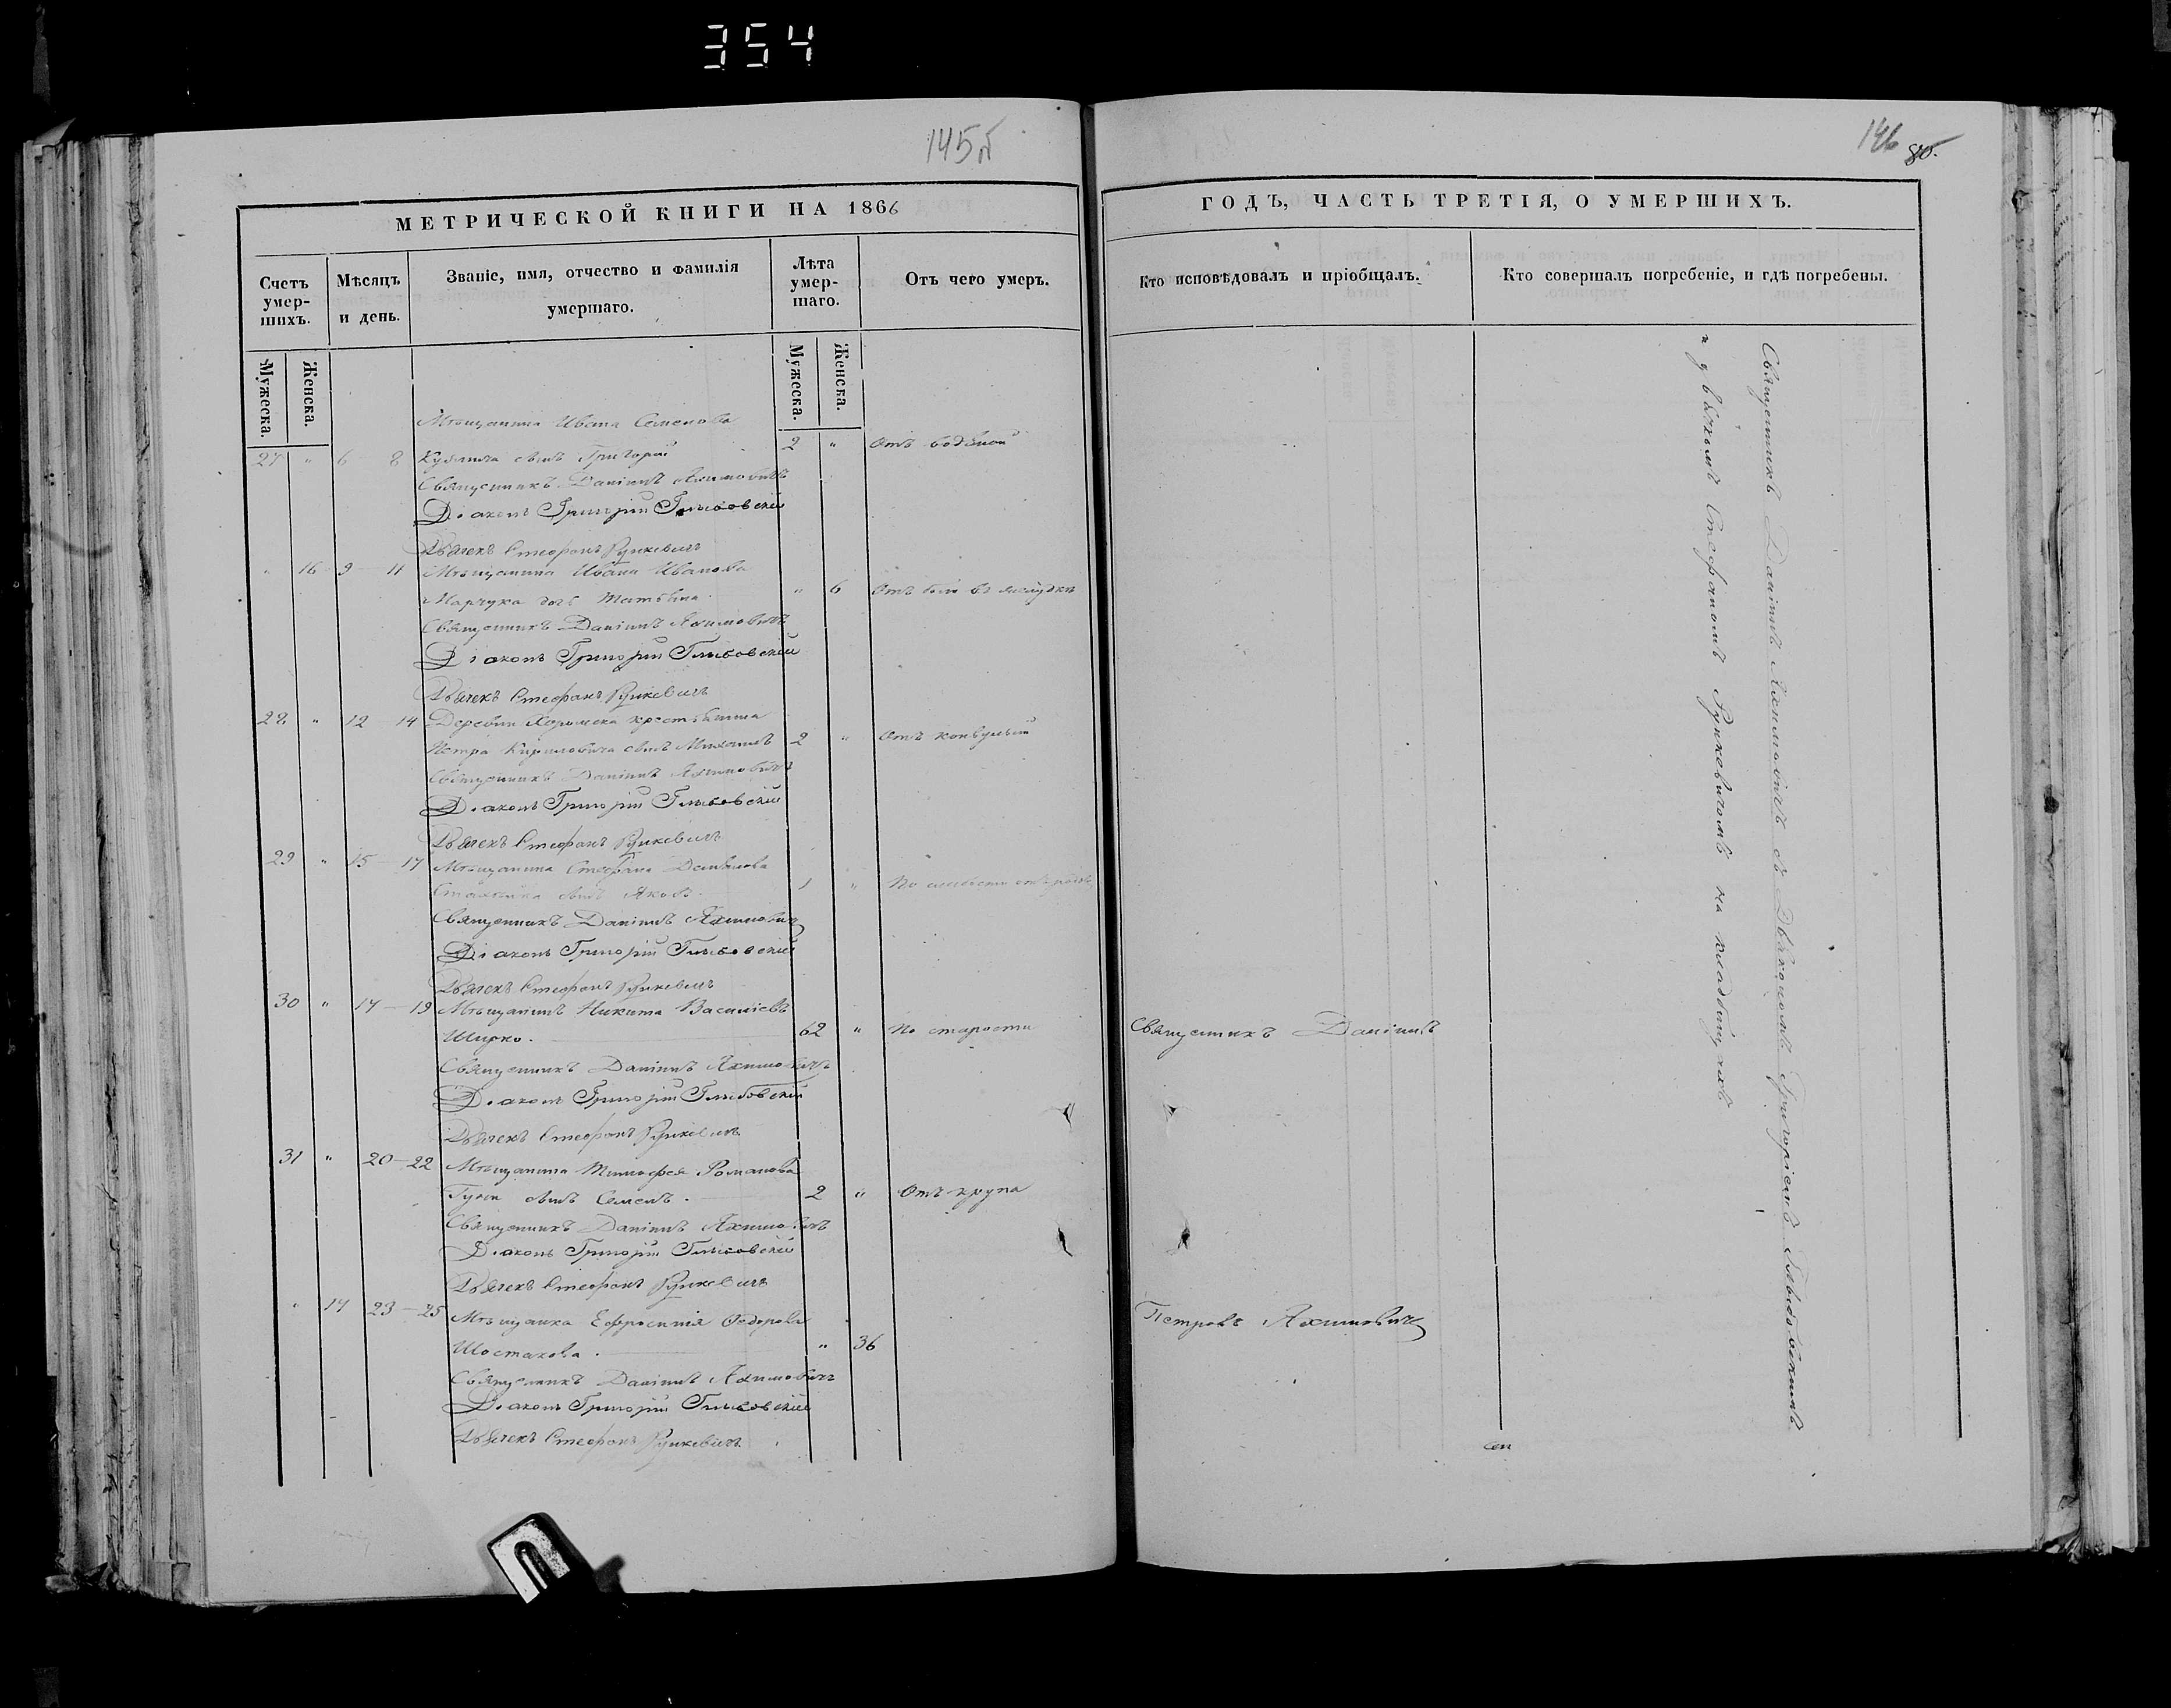 354
145б
146
80.
МЕТРИЧЕСКОЙ КНИГИ НА 1866
ГОДЪ, ЧАСТЬ ТРЕТІЯ, О УМЕРШИХЪ.
Счетъ умер-шихъ.
Мѣсяцъ и день.
Званіе, имя, отчество и фамилія
умершаго.
Лѣта умер-шаго.
Отъ чего умеръ.
Кто исповѣдовалъ и пріобщалъ.
Кто совершалъ погребеніе, и гдѣ погребены.
Мужеска. Женска. Мужеска. Женска.
Мѣщанина Ивана Семенова
27 " 6 8 сынъ Григорій 2 " Отъ
Священникъ Даніилъ Яхимовичъ
Діаконъ Григорій Глыбовскій
Дьячекъ Стефанъ Рункевичъ
" 16 9 – 11 Мѣщанина Ивана Иванова
Марчука дочь Татьяна " 6 Отъ боли въ желудкѣ
Священникъ Даніилъ Яхимовичъ
Діаконъ Григорій Глыбовскій
Дьячекъ Стефанъ Рункевичъ
28 " 12 – 14 Деревни крестьянина
Петра Кириловича сынъ Михаилъ 2 " Отъ конвульсій
Священникъ Даніилъ Яхимовичъ
Діаконъ Григорій Глыбовскій
Дьячекъ Стефанъ Рункевичъ
29 " 15 – 17 Мѣщанина Стефана Демьянова
сынъ Яковъ 1 " По слабости отъ родовъ
Священникъ Даніилъ Яхимовичъ
Діаконъ Григорій Глыбовскій
Дьячекъ Стефанъ Рункевичъ
30 " 17 – 19 Мѣщанинъ Никита Василіевъ
Ширко. 62 " По старости Священникъ Даніилъ
Священникъ Даніилъ Яхимовичъ
Діаконъ Григорій Глыбовскій
Дьячекъ Стефанъ Рункевичъ
31 " 20 – 22 Мѣщанина Тимофея Романова
сынъ Семенъ. 2 " Отъ крупа
Священникъ Даніилъ Яхимовичъ
Діаконъ Григорій Глыбовскій
Дьячекъ Стефанъ Рункевичъ
" 17 23 – 25 Мѣщанка Ефросинія Федорова
Шостакова. " 36
Петровъ Яхимовичъ
Священникъ Даніилъ Яхимовичъ
Діаконъ Григорій Глыбовскій
Дьячекъ Стефанъ Рункевичъ
Священникъ Даніилъ Яхимовичъ съ Діакономъ Григоріемъ Глыбовскимъ
и дьячкомъ Стефаномъ Рункевичомъ на кладбищахъ